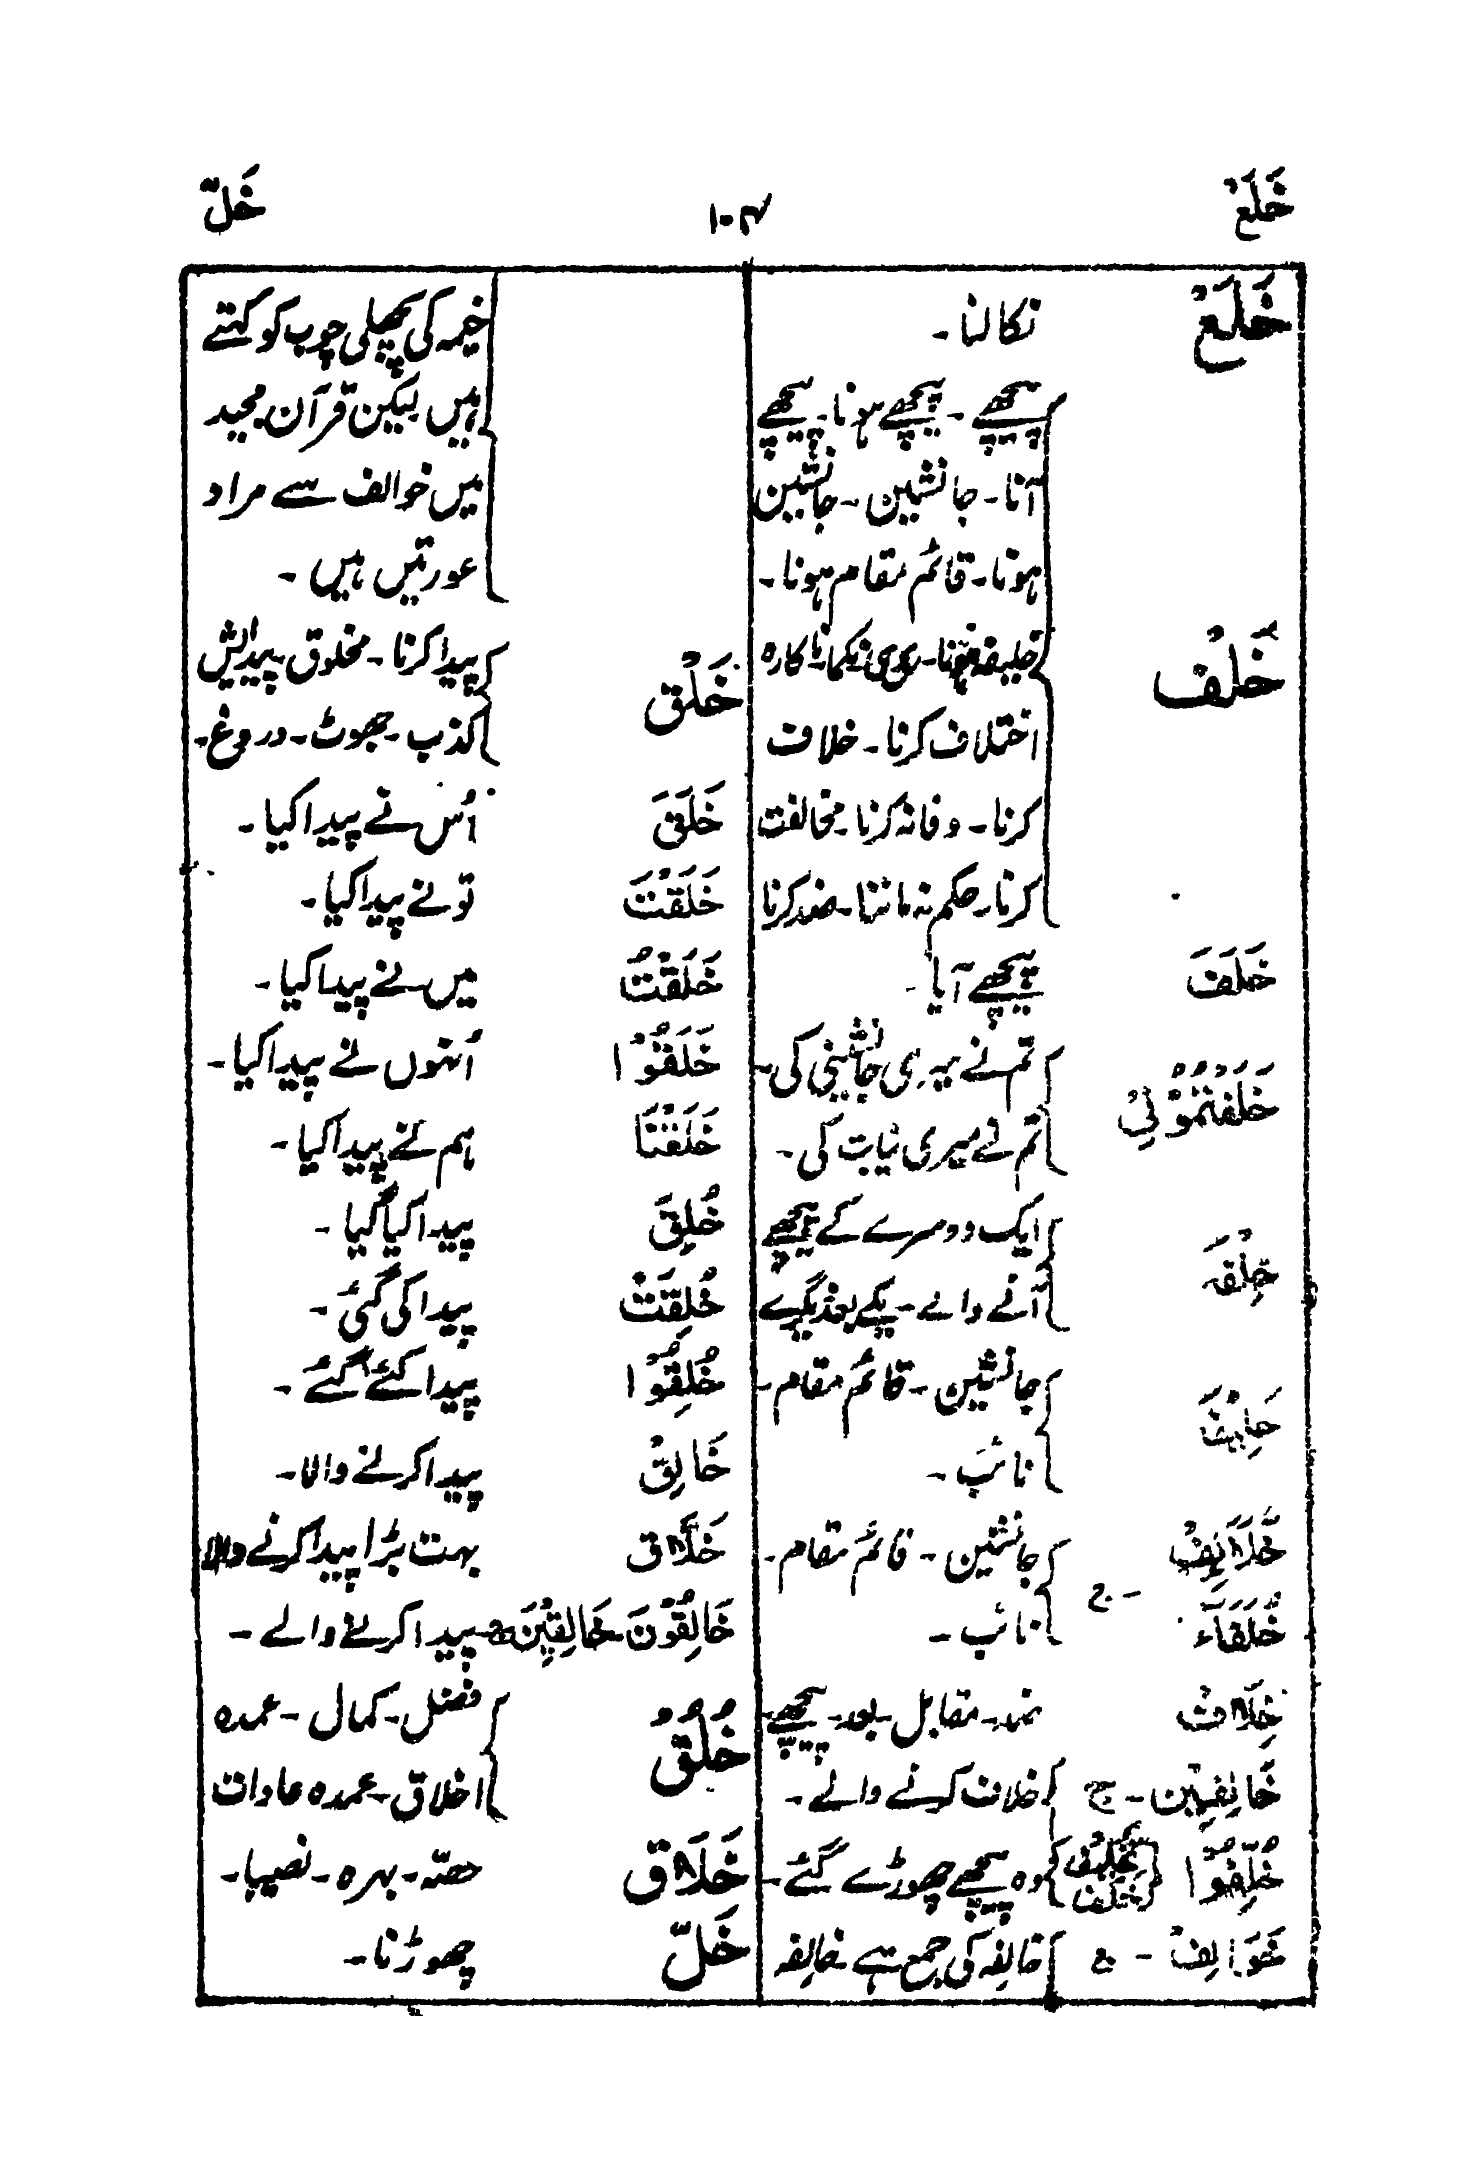 خَلَعْ ۱۰۴ خَلّ
خَلَعْ نکالنا۔
پیچھے۔ پیچھے ہونا۔ پیچھے
آنا۔ جانشین۔ جانشین
ہونا۔ قائم مقام ہونا۔
خَلْف خلیفہ ہونا۔ ردی نکما۔ ناکارہ
اختلاف کرنا۔ خلاف
کرنا۔ وفا نہ کرنا۔ مخالفت
کرنا۔ حکم نہ ماننا۔ ضد کرنا
خَلَفَ پیچھے آیا۔
خَلَفْتُمُوْنِیْ تم نے میری جانشینی کی۔
تم نے میری نیابت کی۔
خِلْفَہ ایک دوسرے کے پیچھے
آنے والے۔ یکے بعد دیگرے
خَلِیْفَہ جانشین۔ قائم مقام۔
نائب۔
خَلَآئِفْ جانشین۔ قائم مقام۔
خُلَفَآءَ ۔ ج نائب۔
خِلَافْ ضد۔ مقابل۔ بعد۔ پیچھے۔
خَالِفِیْن ۔ ج خلاف کرنے والے۔
خُلِّفُوْا وہ پیچھے چھوڑے گئے۔
خَوَالِفْ ۔ ج خالِفہ کی جمع ہے خالِفہ
خیمہ کی پچھلی چوب کو کہتے
ہیں لیکن قرآن مجید
میں خوالف سے مراد
عورتیں ہیں۔
خَلْق پیدا کرنا۔ مخلوق۔ پیدائش
کذب۔ جھوٹ۔ دروغ۔
خَلَقَ اُس نے پیدا کیا۔
خَلَقْتَ تو نے پیدا کیا۔
خَلَقْتُ میں نے پیدا کیا۔
خَلَقُوْا اُنہوں نے پیدا کیا۔
خَلَقْنَا ہم نے پیدا کیا۔
خُلِقَ پیدا کیا گیا۔
خُلِقَتْ پیدا کی گئی۔
خُلِقُوْا پیدا کئے گئے۔
خَالِقْ پیدا کرنے والا۔
خَلَّاق بہت بڑا پیدا کرنے والا
خَالِقُوْنَ۔خَالِقِیْنَ۔ج پیدا کرنے والے۔
خُلُقْ فضل۔ کمال۔ عمدہ
اخلاق۔ عمدہ عادات
خَلَاق حصّہ۔ بہرہ۔ نصیبا۔
خَلّ چھوڑنا۔